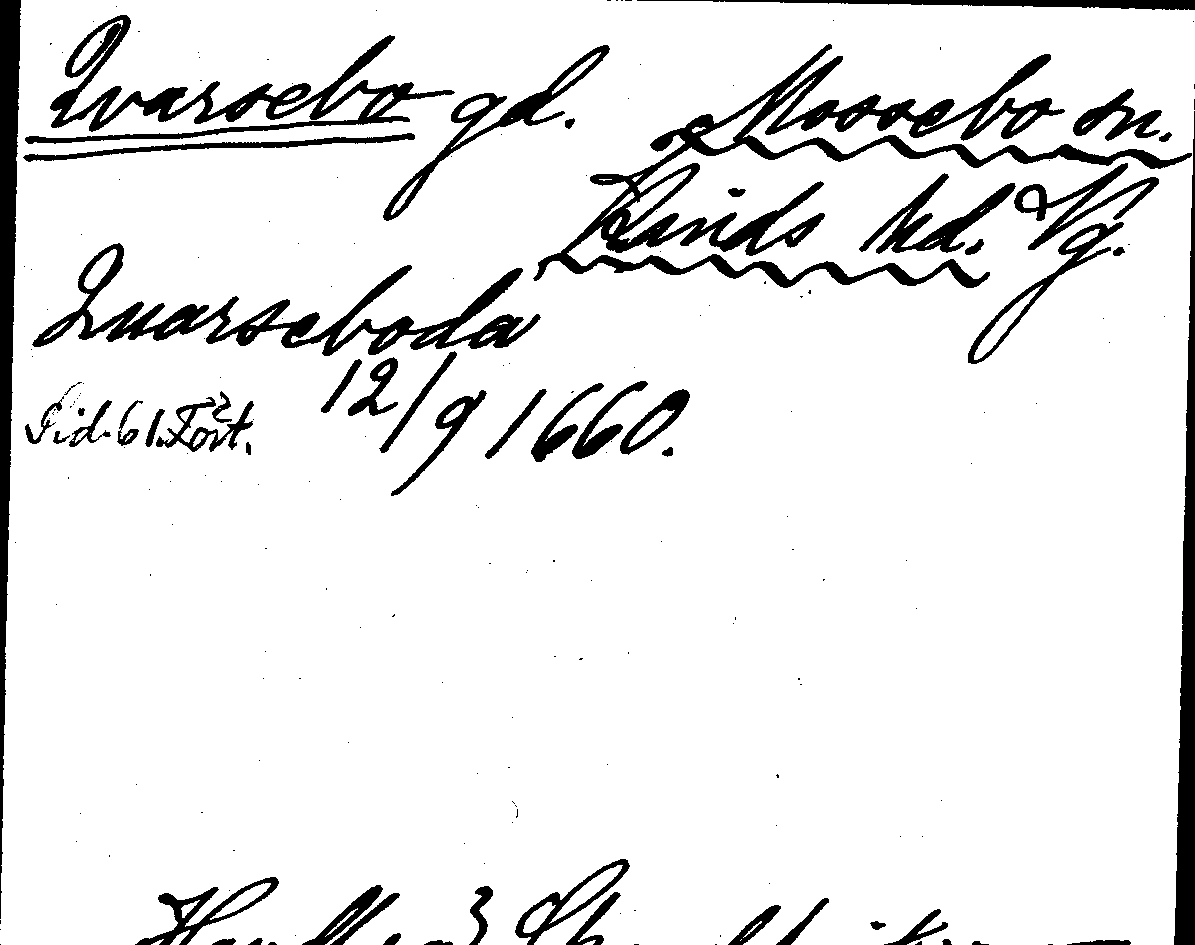 Qvarsebo gd.
Mossebo sn.
Kinds hd. Vg.
Quarseboda
12/9 1660.
Sid. 61. Fört.